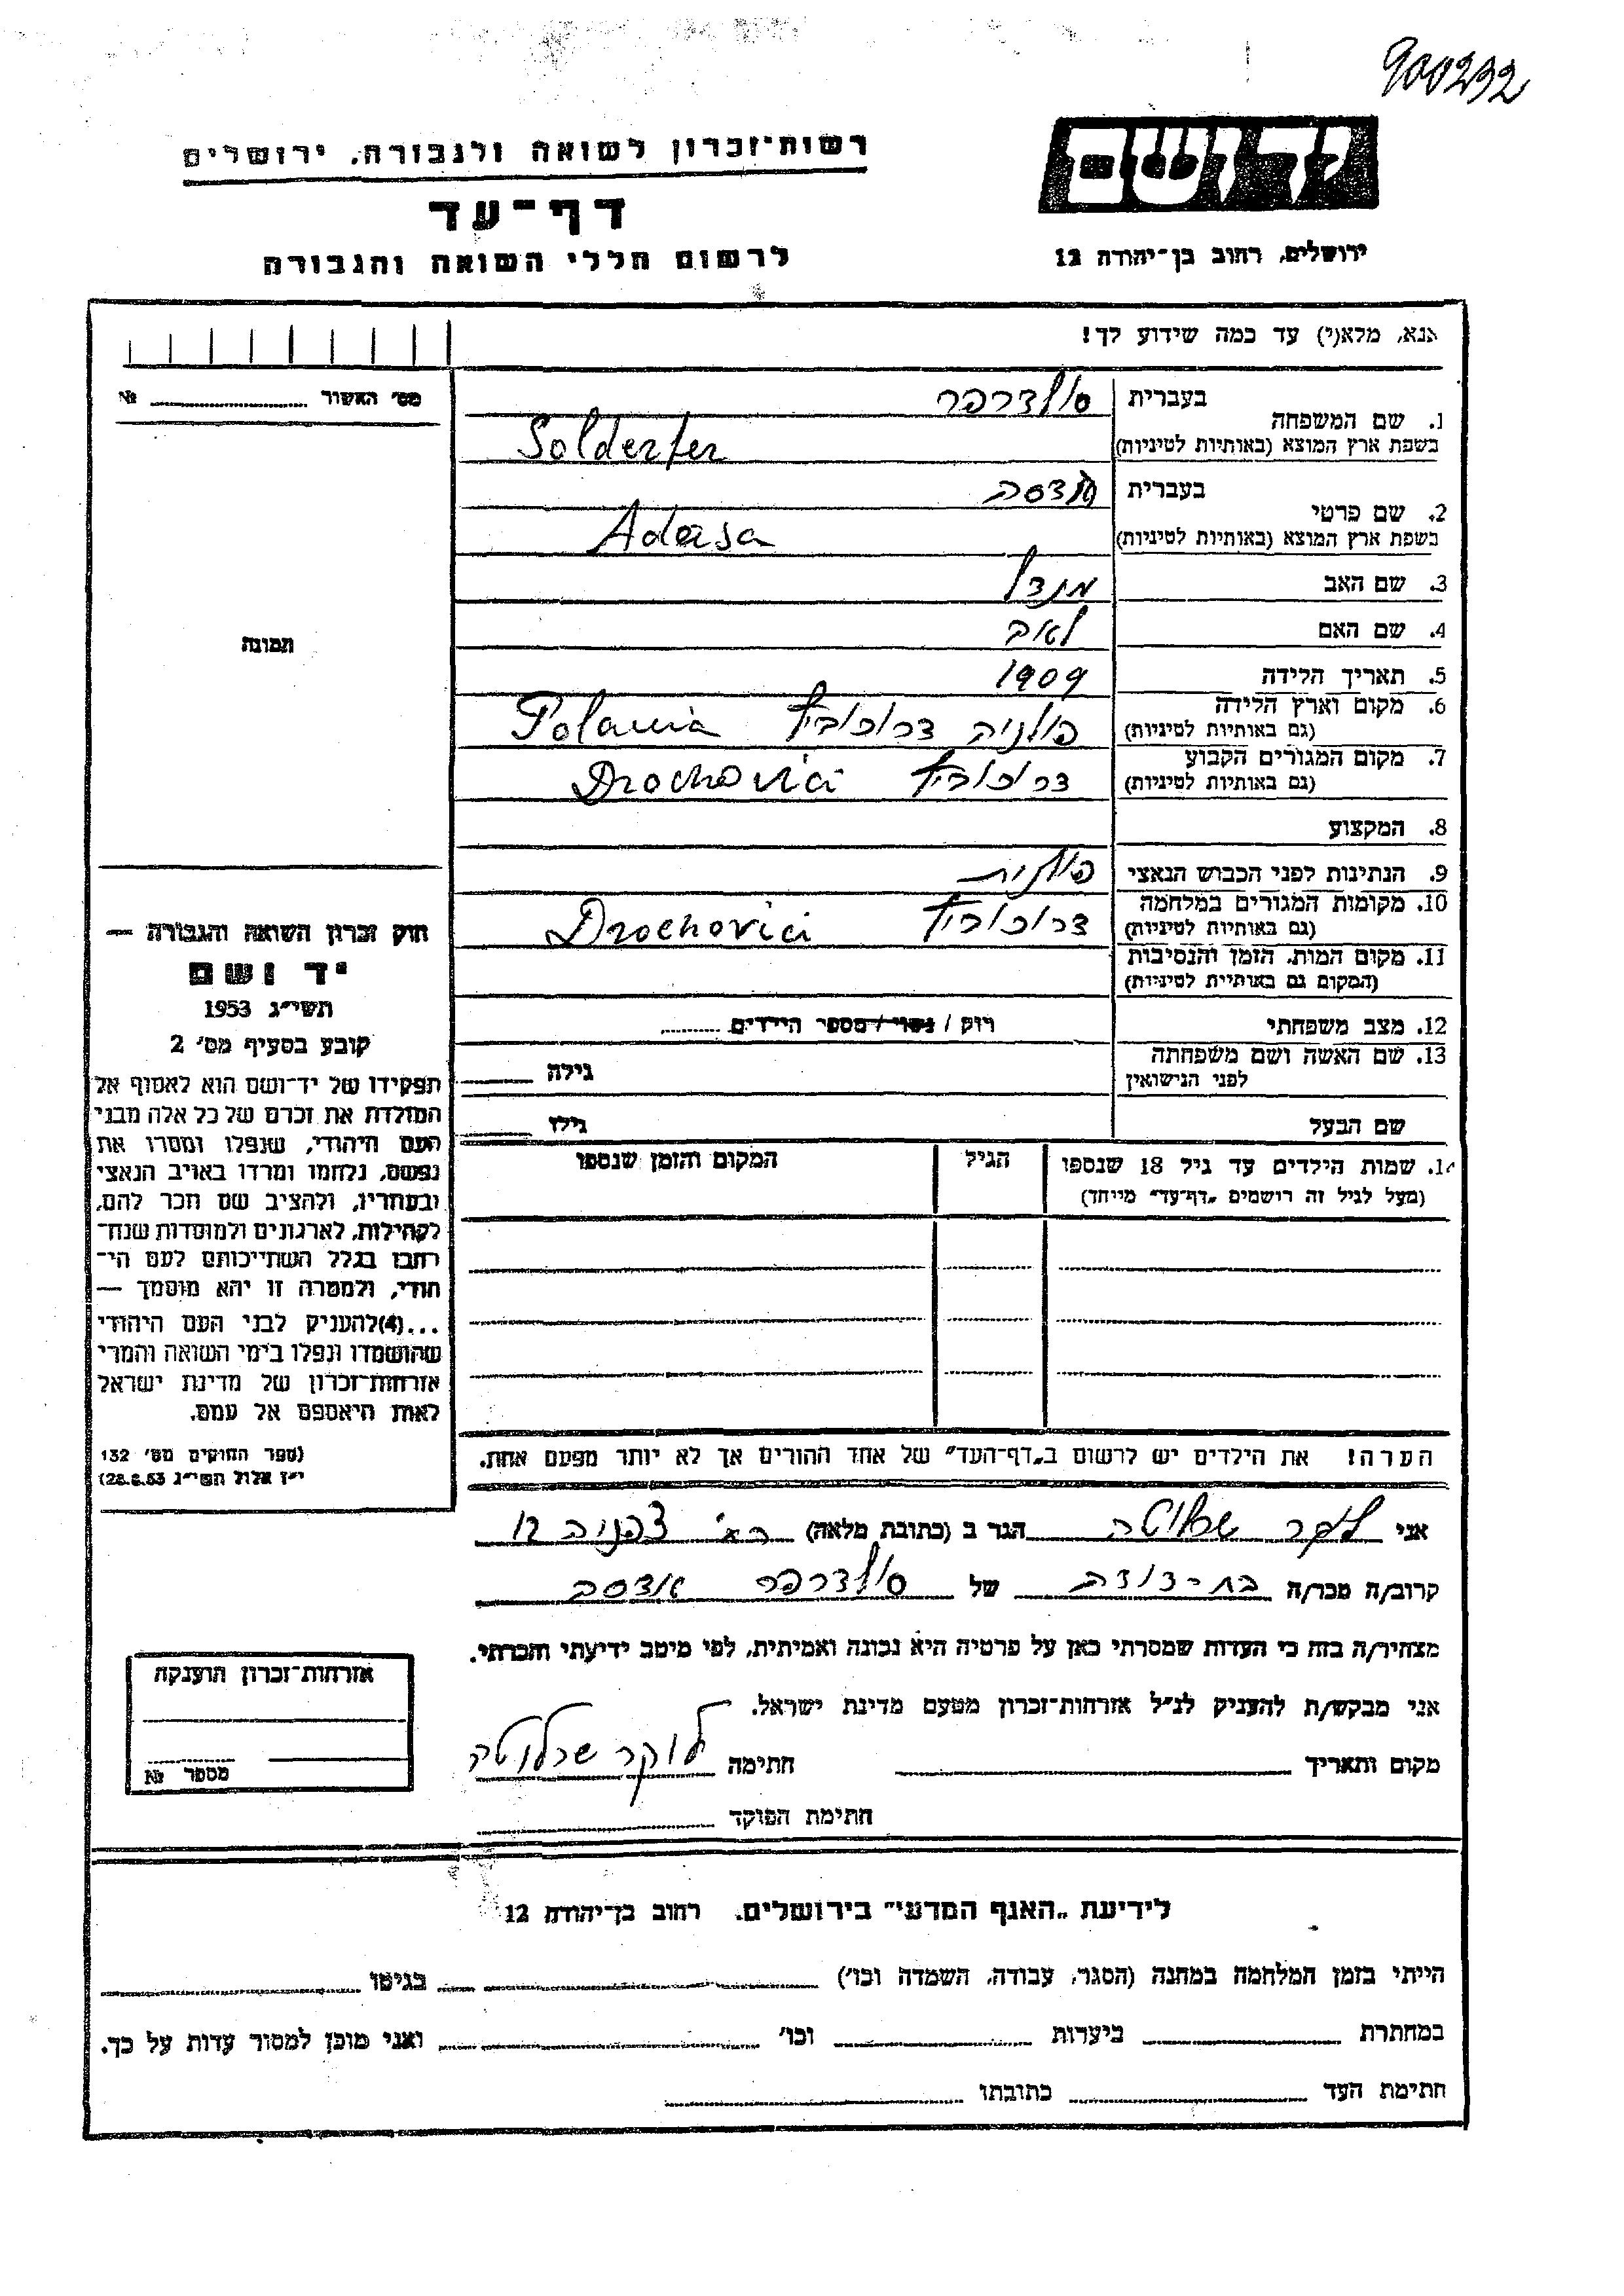 900232
יד ושם
ירושלים, רחוב בן־יהודה 12
רשות־זכרון לשואה ולגבורה, ירושלים
דף־עד
לרשום חללי השואה והגבורה
אנא, מלא(י) עד כמה שידוע לך!
מס' האשור № 
1. שם המשפחה
בעברית סולדרפר
בשפת ארץ המוצא (באותיות לטיניות) Solderfer
2. שם פרטי
בעברית אדסה
בשפת ארץ המוצא (באותיות לטיניות) Adersa
3. שם האב מנדל
4. שם האם לאה
5. תאריך הלידה 1909
6. מקום וארץ הלידה
(גם באותיות לטיניות) פולניה דרוכוביץ Polania
7. מקום המגורים הקבוע
(גם באותיות לטיניות) דרוכוביץ Drochovici
8. המקצוע
9. הנתינות לפני הכבוש הנאצי פולנית
10. מקומות המגורים במלחמה
(גם באותיות לטיניות) דרוכוביץ Drochovici
11. מקום המות, הזמן והנסיבות
(המקום גם באותיית לטיניות)
12. מצב משפחתי רוק / נשוי / מספר הילדים
13. שם האשה ושם משפחתה
לפני הנישואין גילה
שם הבעל גילו
14. שמות הילדים עד גיל 18 שנספו הגיל המקום והזמן שנספו
(מעל לגיל זה רושמים „דף־עד" מייחד)
תמונה
חוק זכרון השואה והגבורה —
יד ושם
תשי"ג 1953
קובע בסעיף מס' 2
תפקידו של יד־ושם הוא לאסוף אל
המולדת את זכרם של כל אלה מבני
העם היהודי, שנפלו ומסרו את
נפשם, נלחמו ומרדו באויב הנאצי
ובעוזריו, ולהציב שם וזכר להם,
לקהילות, לארגונים ולמוסדות שנח־
רבו בגלל השתייכותם לעם הי־
הודי, ולמטרה זו יהא מוסמך —
...(4)להעניק לבני העם היהודי
שהושמדו ונפלו בימי השואה והמרי
אזרחות־זכרון של מדינת ישראל
לאות היאספם אל עמם.
(ספר החוקים מס' 132
י"ז אלול תשי"ג 28.8.53)
הערה! את הילדים יש לרשום ב„דף־העד" של אחד ההורים אך לא יותר מפעם אחת.
אני לוקר שרלוטה הגר ב (כתובת מלאה) צפניה 12
קרוב/ה מכר/ה בת-דודה של סולדרפר אדסה
מצהיר/ה בזה כי העדות שמסרתי כאן על פרטיה היא נכונה ואמיתית, לפי מיטב ידיעתי והכרתי.
אני מבקש/ת להעניק לנ"ל אזרחות־זכרון מטעם מדינת ישראל.
מקום ותאריך חתימה לוקר שרלוטה
חתימת הפוקד
אזרחות־זכרון הוענקה
מספר №
לידיעת „האגף המדעי" בירושלים, רחוב בן־יהודה 12
הייתי בזמן המלחמה במחנה (הסגר, עבודה, השמדה וכו') בגיטו
במחתרת ביערות וכו' ואני מוכן למסור עדות על כך.
חתימת העד כתובתו